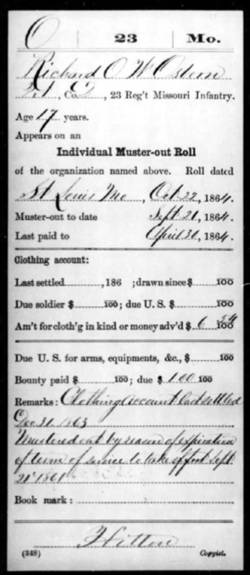 O 23 Mo.
Richard O W Osten
Pvt, Co. E, 23 Reg't Missouri Infantry.
Age 27 years.
Appears on an
Individual Muster-out Roll
of the organization named above. Roll dated
St Louis Mo, Oct 22, 1864.
Muster-out to date Sept 21, 1864.
Last paid to April 30, 1864.
Clothing account:
Last settled , 186 ; drawn since $ 100
Due soldier $ 100; due U. S. $ 100
Am't for cloth'g in kind or money adv'd $ 6 34/100
Due U. S. for arms, equipments, &c., $ 100
Bounty paid $ 100; due $ 100 100
Remarks: Clothing account last settled
Dec 31 1863
Mustered out by reason of expiration
of term of service to take effect Sept.
21" 1864
Book mark:
Hitton
(348) Copyist.